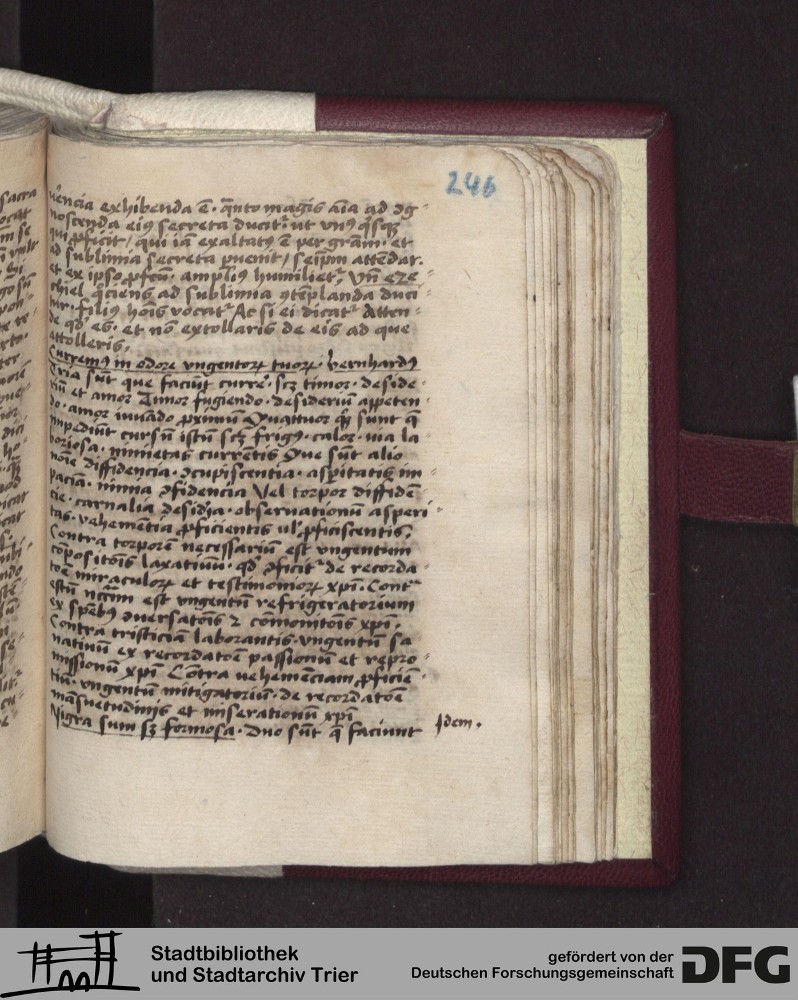 246
uencia exhibenda ē · q̄nto magis aīa ad ꝯg
noscenda eiꝰ secreta ducit᷑ ut vnꝰ q̄sqꝫ
qui ꝓficit / qui iā exaltatꝰ ē per gr̄am · et
ad sublimia secreta puenit / seip̄m attēdat.
et ex ipso ꝓfcū · ampliꝰ humiliet᷑, vn̄ eze
chiel q̄ciens ad sublimia ꝯtēplanda duci
tur · filiꝰ hoīs vocat᷑ Ac si ei dicat᷑ Atten
de qd̓ es · et nō extollaris de eis ad que
attolleris.
Curremꝰ in odore vngentoꝝ tuoꝝ · bernhardꝰ
Tria sūt que faciūt curre᷑ · scꝫ timor · deside
riū et amor Timor fugiendo · desideriū appeten
do · amor iuuādo ꝓximū Quattuor qꝫ sunt q̄
impediūt cursū istū scꝫ frigꝰ · calor · via la
boriosa · nimietas currētis Que sūt alio
noīe diffidencia · ꝯcupiscentia · asꝑitatis im
paciā · nimia ꝯfidencia Vel torpor diffidē
cie · carnalia desidia · obseruationū asperi
tas · vehemētia ꝓficientis ul᷑ ꝓficiscentis,
Contra torporē necessariū est vngentum
cōpositōīs laxatiuū · qd̓ ꝯficit᷑ de recorda
tōe miraculoꝝ et testimonioꝝ xp̄i · Contᷓ
estū nc̄cm est vngentū refrigeratorium
ex speb̄ꝰ ꝯuersatōīs ⁊ cōmonitōīs xp̄i.
Contra tristiciā laborantis · vngentū sa
natiuū ex recordatōe passionū et repro
missionū xp̄i Cōtra vehemēciam ꝓficiē
tiū · vngentū mitigatoriū · de recordatōe
māsuetudinis et miserationū xp̄i
Nigra sum sꝫ formosa · Duo sūt q̄ faciunt
Idem.
Stadtbibliothek
und Stadtarchiv Trier
gefördert von der
Deutschen Forschungsgemeinschaft
DFG